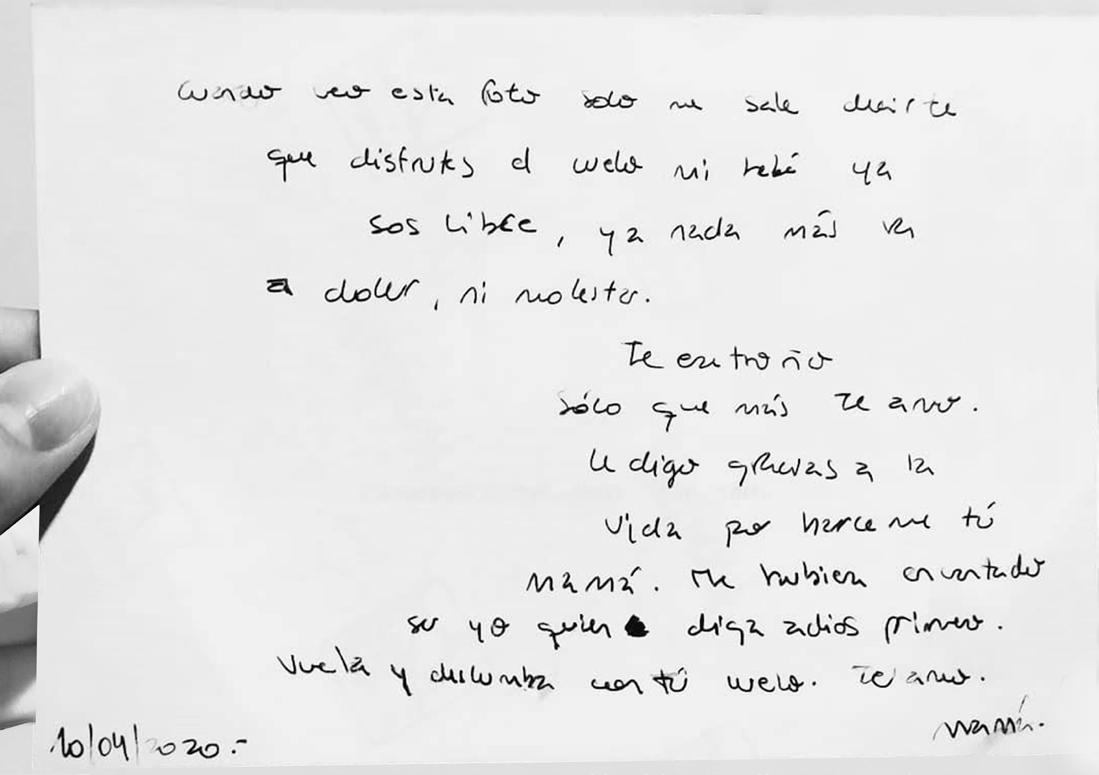 Cuando veo esta foto solo me sale decirte
que disfrutes el vuelo mi bebé ya
sos libre, ya nada más va
a doler, ni molestar.
Te extraño
sólo que más te amo.
Le digo gracias a la
vida por hacerme tú
mamá. Me hubiera encantado
ser yo quien diga adios primero.
Vuela y deslumbra con tú vuelo. Te amo.
Mamá.
10/04/2020.-